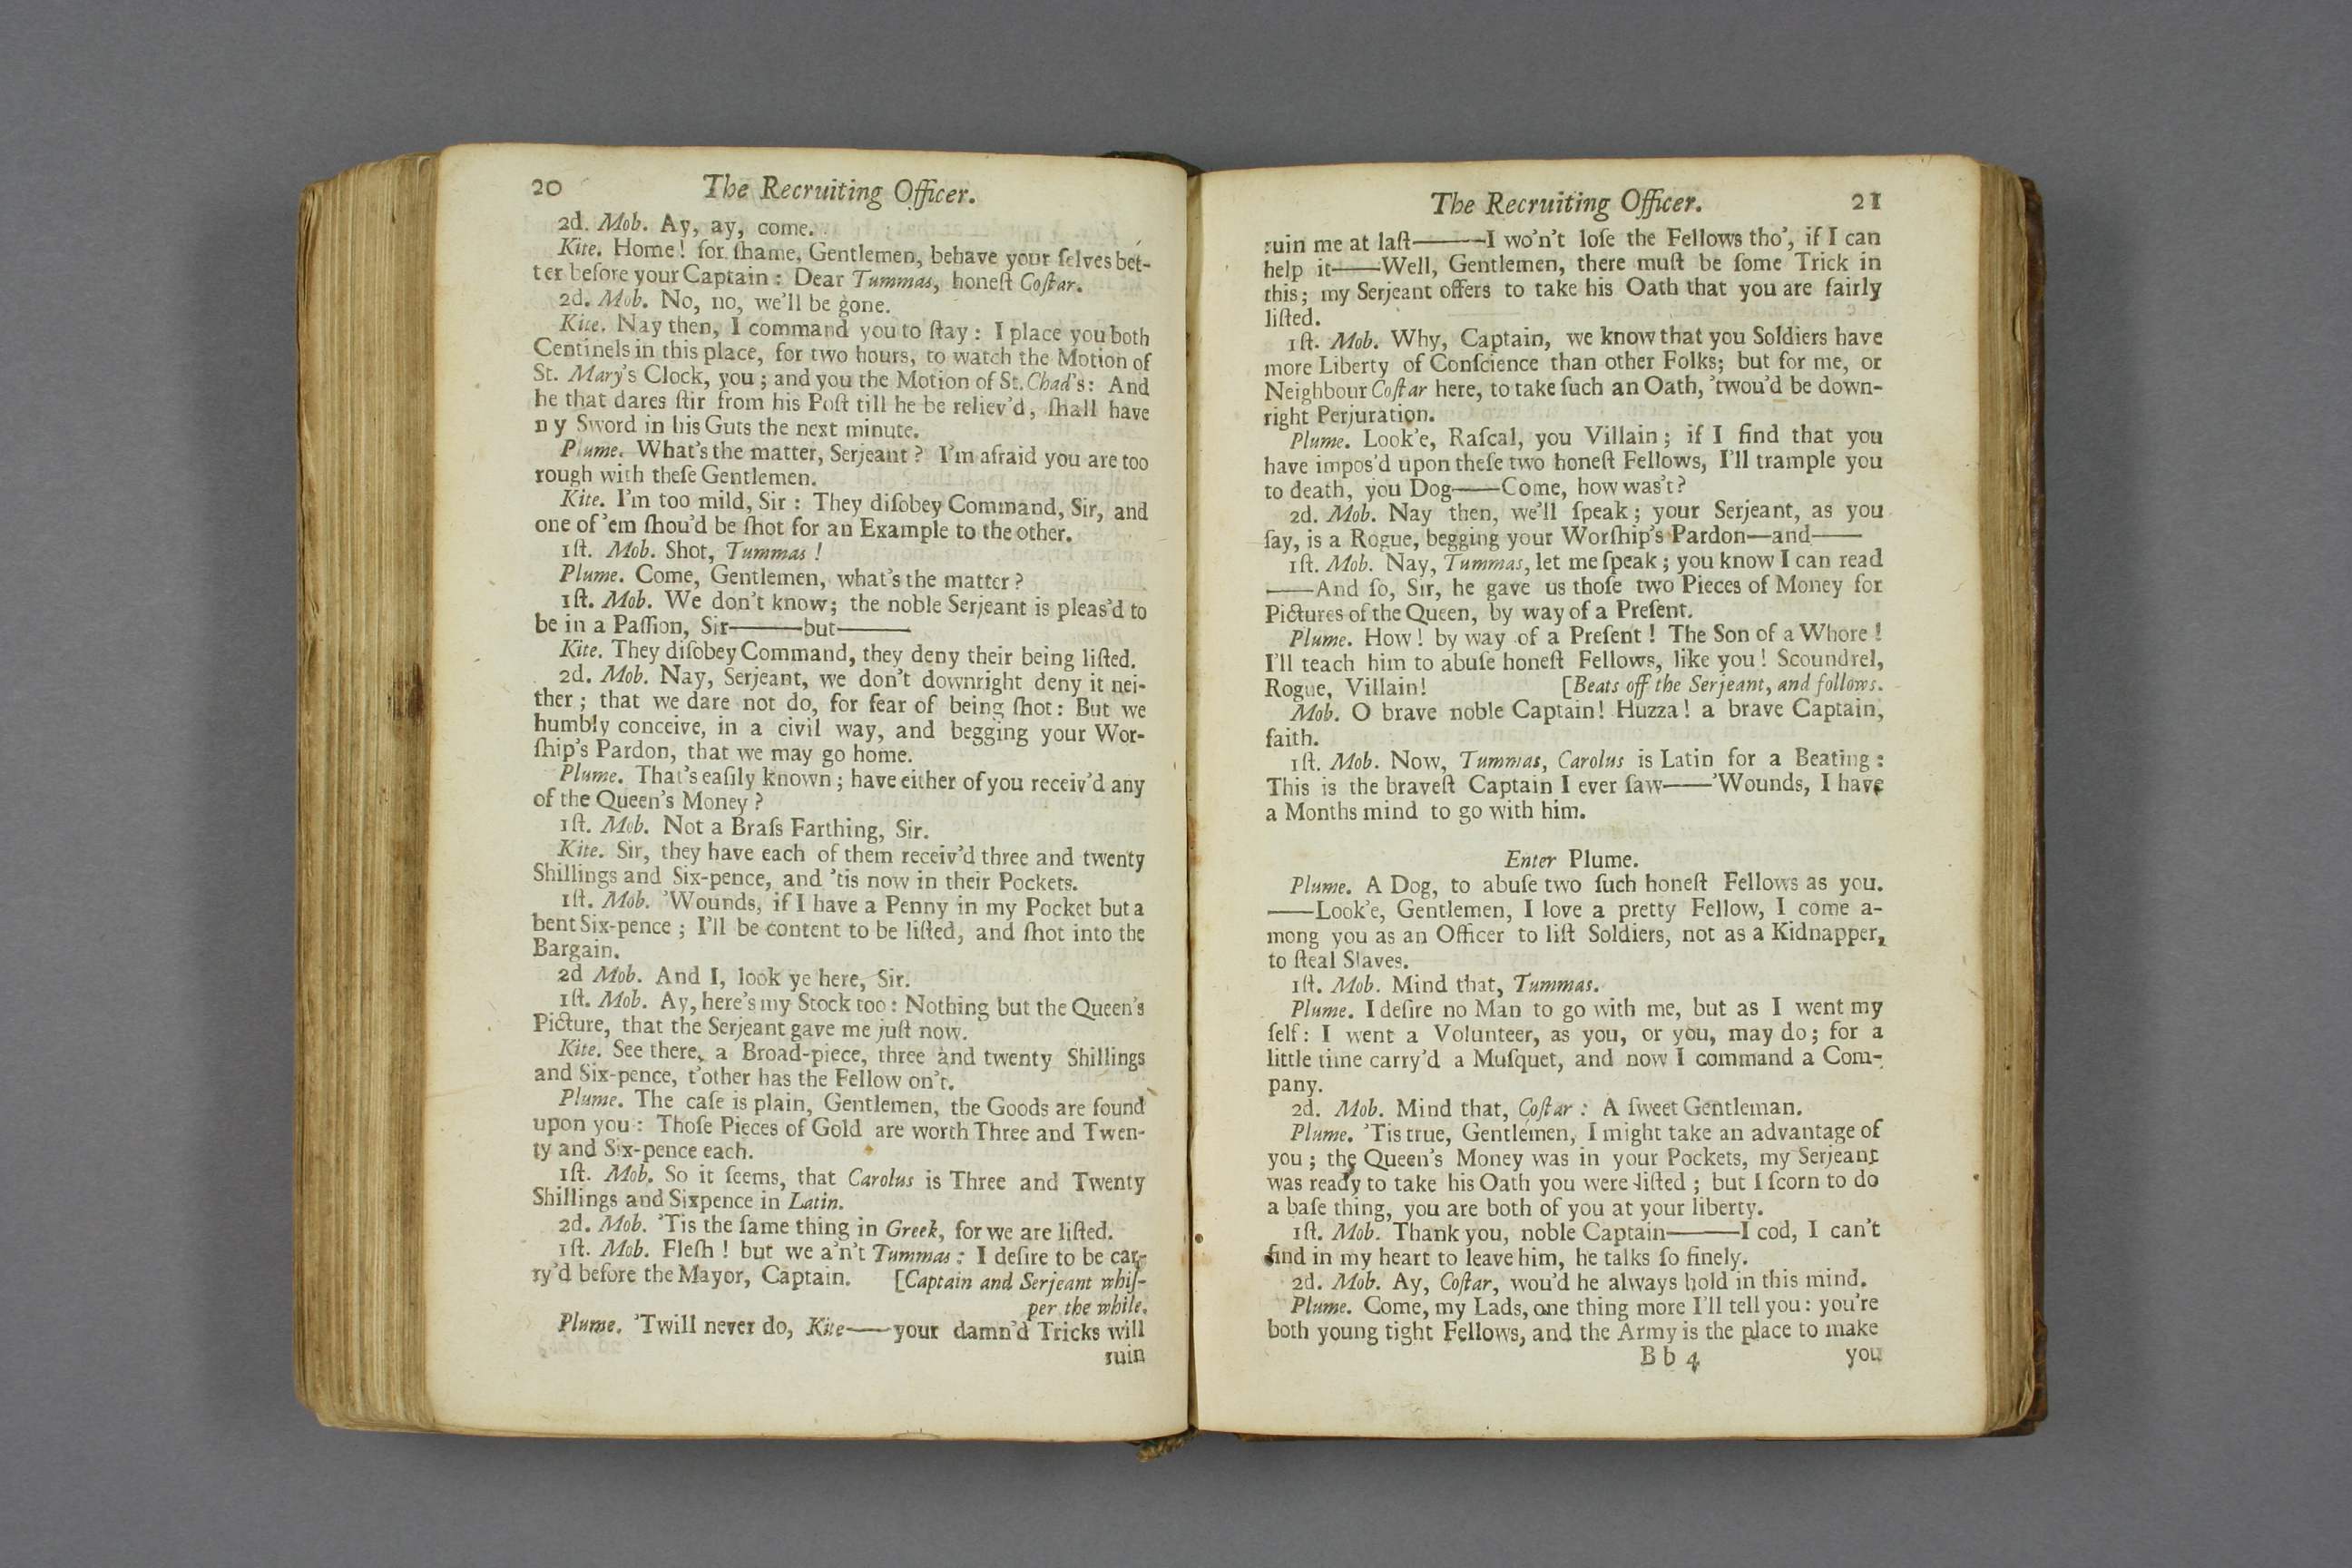 20 The Recruiting Officer.
2d. Mob. Ay, ay, come.
Kite. Home! for ſhame, Gentlemen, behave your ſelves bet-
ter before your Captain: Dear Tummas, honeſt Coſtar.
2d. Mob. No, no, we'll be gone.
Kite. Nay then, I command you to ſtay: I place you both
Centinels in this place, for two hours, to watch the Motion of
St. Mary's Clock, you; and you the Motion of St. Chad's: And
he that dares ſtir from his Poſt till he be reliev'd, ſhall have
ny Sword in his Guts the next minute.
Plume. What's the matter, Serjeant? I'm afraid you are too
rough with theſe Gentlemen.
Kite. I'm too mild, Sir: They diſobey Command, Sir, and
one of 'em ſhou'd be ſhot for an Example to the other.
1ſt. Mob. Shot, Tummas!
Plume. Come, Gentlemen, what's the matter?
1ſt. Mob. We don't know; the noble Serjeant is pleas'd to
be in a Paſſion, Sir———but———
Kite. They diſobey Command, they deny their being liſted.
2d. Mob. Nay, Serjeant, we don't downright deny it nei-
ther; that we dare not do, for fear of being ſhot: But we
humbly conceive, in a civil way, and begging your Wor-
ſhip's Pardon, that we may go home.
Plume. That's eaſily known; have either of you receiv'd any
of the Queen's Money?
1ſt. Mob. Not a Braſs Farthing, Sir.
Kite. Sir, they have each of them receiv'd three and twenty
Shillings and Six-pence, and 'tis now in their Pockets.
1ſt. Mob. 'Wounds, if I have a Penny in my Pocket but a
bent Six-pence; I'll be content to be liſted, and ſhot into the
Bargain.
2d Mob. And I, look ye here, Sir.
1ſt. Mob. Ay, here's my Stock too: Nothing but the Queen's
Picture, that the Serjeant gave me juſt now.
Kite. See there, a Broad-piece, three and twenty Shillings
and Six-pence, t'other has the Fellow on't.
Plume. The caſe is plain, Gentlemen, the Goods are found
upon you: Thoſe Pieces of Gold are worth Three and Twen-
ty and Six-pence each.
1ſt. Mob. So it ſeems, that Carolus is Three and Twenty
Shillings and Sixpence in Latin.
2d. Mob. 'Tis the ſame thing in Greek, for we are liſted.
1ſt. Mob. Fleſh! but we a'n't Tummas: I deſire to be car-
ry'd before the Mayor, Captain. [Captain and Serjeant whiſ-
per the while.
Plume. 'Twill never do, Kite——your damn'd Tricks will
ruin
The Recruiting Officer. 21
ruin me at laſt———I wo'n't loſe the Fellows tho', if I can
help it——Well, Gentlemen, there muſt be ſome Trick in
this; my Serjeant offers to take his Oath that you are fairly
liſted.
1ſt. Mob. Why, Captain, we know that you Soldiers have
more Liberty of Conſcience than other Folks; but for me, or
Neighbour Coſtar here, to take ſuch an Oath, 'twou'd be down-
right Perjuration.
Plume. Look'e, Raſcal, you Villain; if I find that you
have impos'd upon theſe two honeſt Fellows, I'll trample you
to death, you Dog——Come, how was't?
2d. Mob. Nay then, we'll ſpeak; your Serjeant, as you
ſay, is a Rogue, begging your Worſhip's Pardon—and——
1ſt. Mob. Nay, Tummas, let me ſpeak; you know I can read
——And ſo, Sir, he gave us thoſe two Pieces of Money for
Pictures of the Queen, by way of a Preſent.
Plume. How! by way of a Preſent! The Son of a Whore!
I'll teach him to abuſe honeſt Fellows, like you! Scoundrel,
Rogue, Villain! [Beats off the Serjeant, and follows.
Mob. O brave noble Captain! Huzza! a brave Captain,
faith.
1ſt. Mob. Now, Tummas, Carolus is Latin for a Beating:
This is the braveſt Captain I ever ſaw——'Wounds, I have
a Months mind to go with him.
Enter Plume.
Plume. A Dog, to abuſe two ſuch honeſt Fellows as you.
——Look'e, Gentlemen, I love a pretty Fellow, I come a-
mong you as an Officer to liſt Soldiers, not as a Kidnapper,
to ſteal Slaves.
1ſt. Mob. Mind that, Tummas.
Plume. I deſire no Man to go with me, but as I went my
ſelf: I went a Volunteer, as you, or you, may do; for a
little time carry'd a Muſquet, and now I command a Com-
pany.
2d. Mob. Mind that, Coſtar: A ſweet Gentleman.
Plume. 'Tis true, Gentlemen, I might take an advantage of
you; the Queen's Money was in your Pockets, my Serjeant
was ready to take his Oath you were liſted; but I ſcorn to do
a baſe thing, you are both of you at your liberty.
1ſt. Mob. Thank you, noble Captain———I cod, I can't
find in my heart to leave him, he talks ſo finely.
2d. Mob. Ay, Coſtar, wou'd he always hold in this mind.
Plume. Come, my Lads, one thing more I'll tell you: you're
both young tight Fellows, and the Army is the place to make
B b 4 you